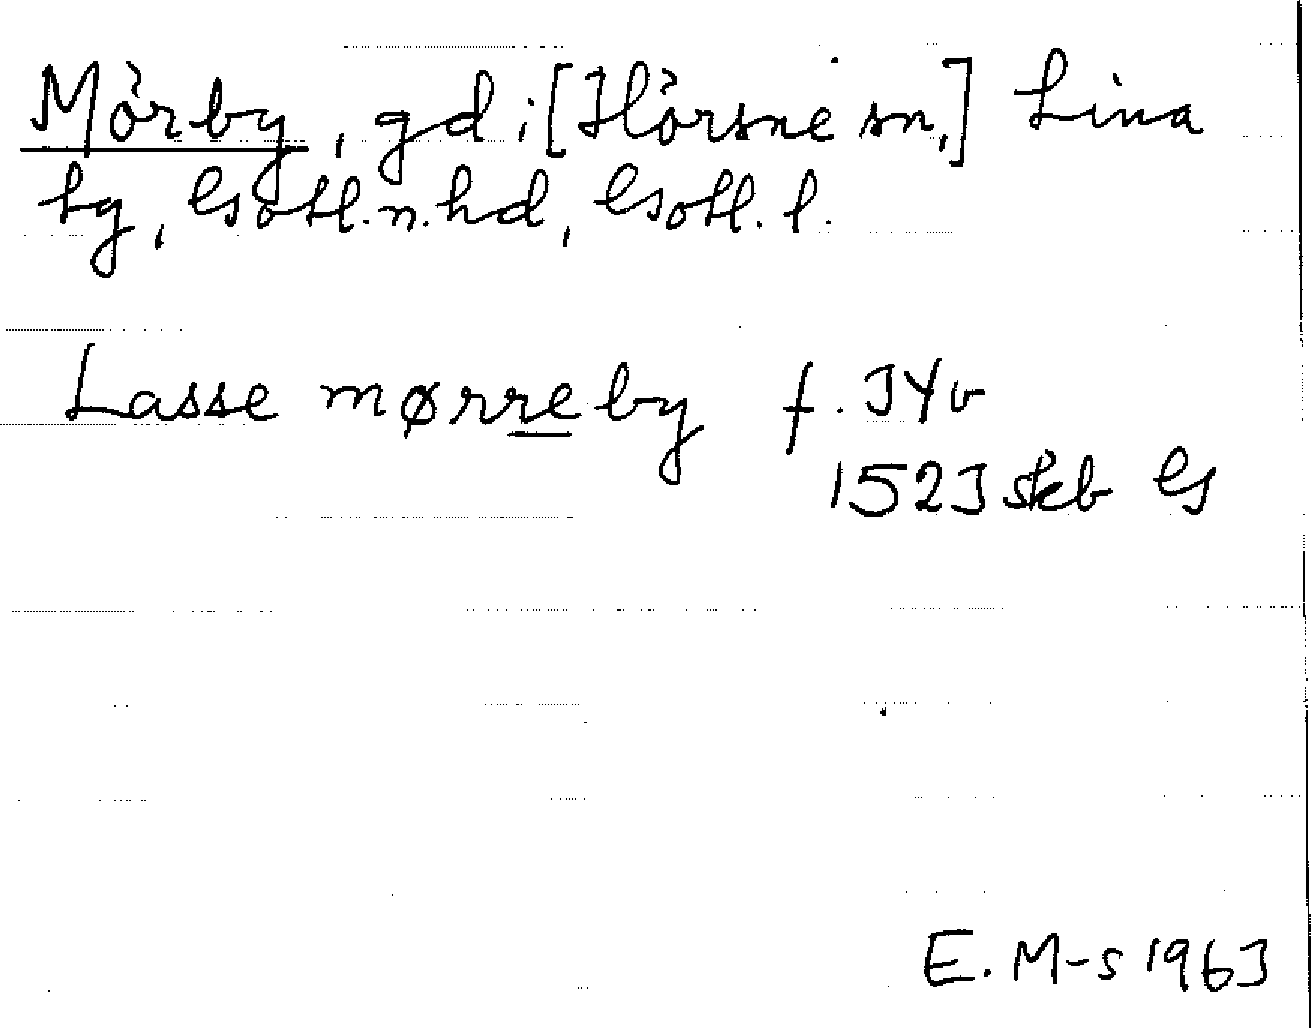 Mörby, gd i [Hörsne sn,] Lina
tg, Gotl. n. hd, Gotl. l.
Lasse mørreby f. 34v
1523 skb G
E. M-s 1963